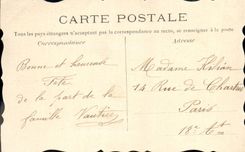 CARTE POSTALE
Tous les pays étrangers n'acceptant pas la correspondance au recto, se renseigner à la poste
Correspondance
Adresse
Bonne et heureuse
Fête
de la part de la
famille Vautier
Madame Kilian
14 Rue de Chartres
Paris
18e